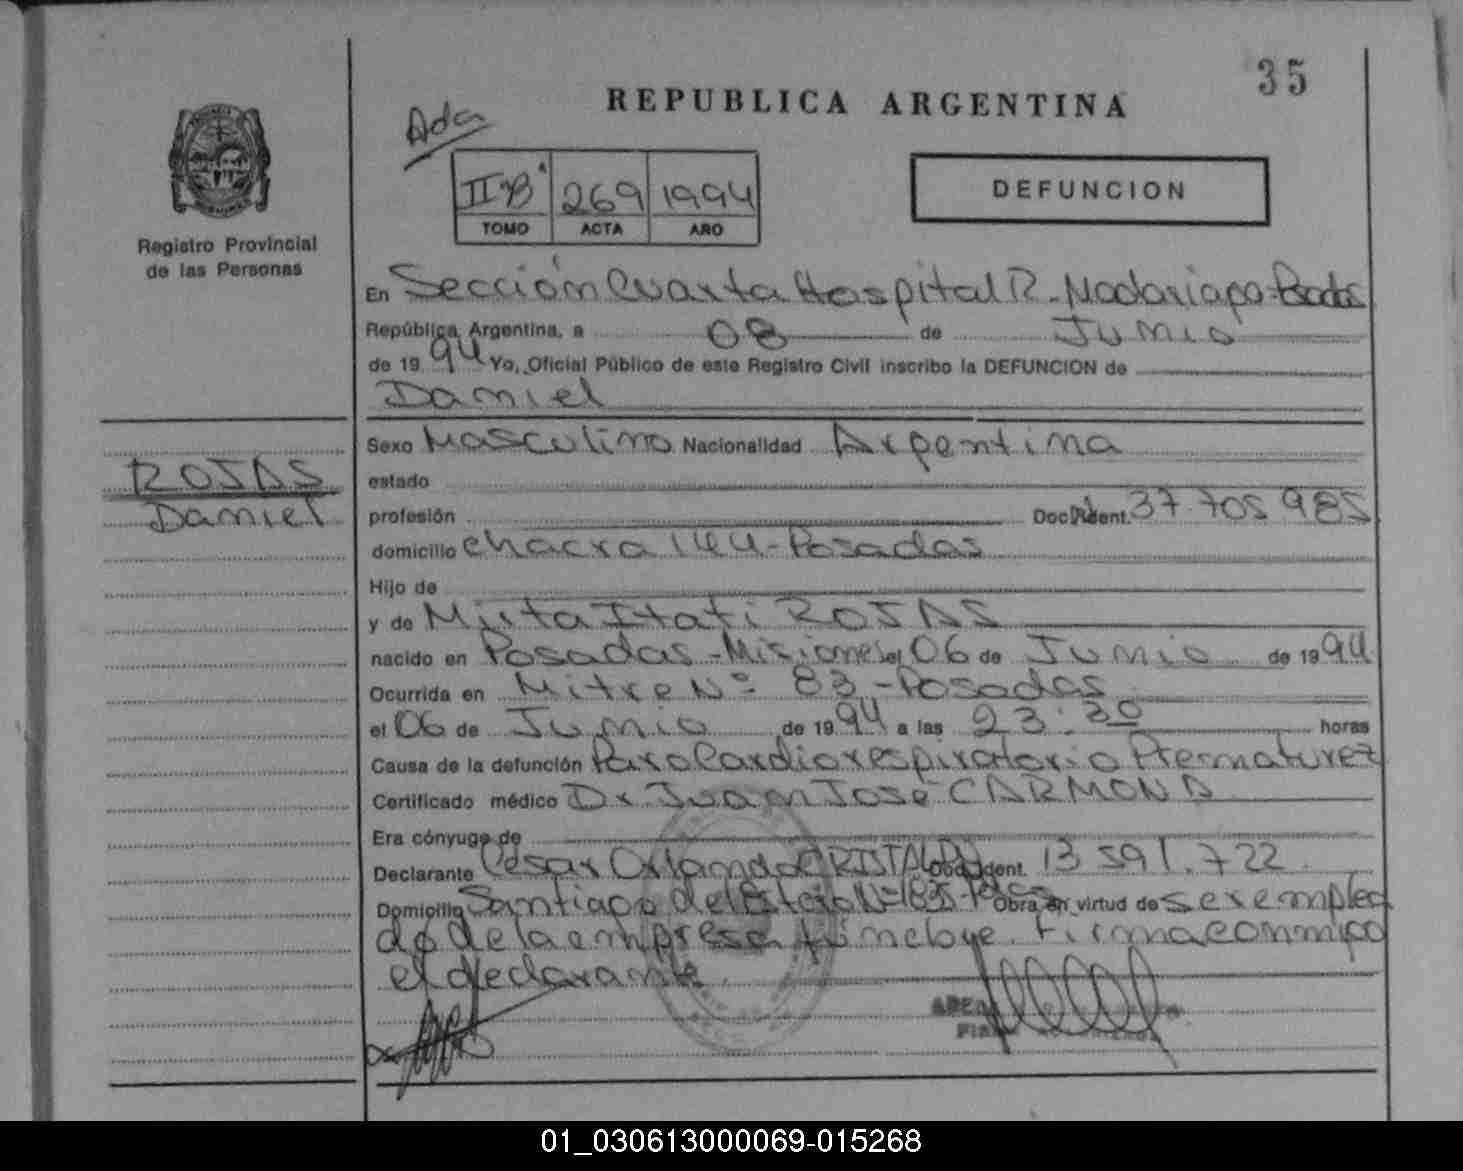 35
REPUBLICA ARGENTINA
Ada
IIºB 269 1994
TOMO ACTA AÑO
DEFUNCION
Registro Provincial
de las Personas
ROJAS
Daniel
En Sección Cuarta Hospital R. Madariaga-Posadas
República Argentina, a 08 de Junio
de 1994 Yo, Oficial Público de este Registro Civil inscribo la DEFUNCION de
Daniel
Sexo Masculino Nacionalidad Argentina
estado
profesión Doc. Ident. 37.705.985
domicilio chacra 144-Posadas
Hijo de
y de Mirta Itatí ROJAS
nacido en Posadas-Misiones el 06 de Junio de 1994
Ocurrida en Mitre Nº 83-Posadas
el 06 de Junio de 1994 a las 23:30 horas
Causa de la defunción Paro Cardiorespiratorio Prematurez
Certificado médico Dr. Juan José CARMONA
Era cónyuge de
Declarante Cesar Orlando CRISTALDO Doc. Ident. 13.591.722
Domicilio Santiago del Estero Nº 1835-Pdas Obra en virtud de ser emplea
do de la empresa fúnebre. Firma conmigo
el declarante.
01_030613000069-015268